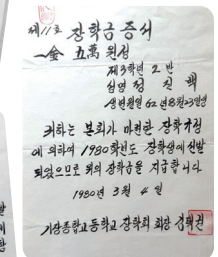 제11호 장학금증서
一金 五萬원정
제3학년 2반
성명 정진택
생년월일 62년 8월 23일생
귀하는 본회가 마련한 장학규정
에 의하여 1980학년도 장학생에 선발
되었으므로 위의 장학금을 지급합니다
1980년 3월 4일
기장종합고등학교 장학회 회장 김택권